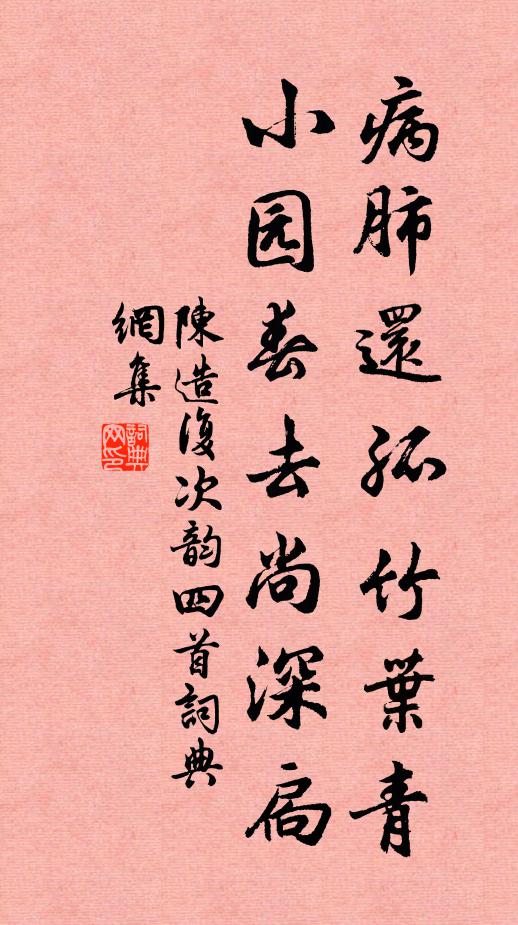 病肺還孤竹葉青
小园春去尚深扃
陳造復次韵四首詞典
網集
詞典网印